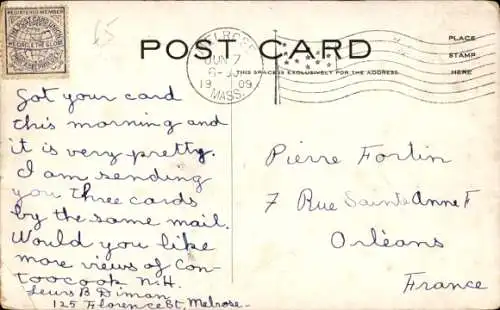 REGISTERED MEMBER
THE POST CARD UNION
ENCIRCLE THE GLOBE
65
POST CARD
MELROSE
JUN 7
19 09
MASS.
THIS SPACE IS EXCLUSIVELY FOR THE ADDRESS
PLACE
STAMP
HERE
Got your card
this morning and
it is very pretty.
I am sending
you three cards
by the same mail.
Would you like
more views of Con-
toocook N.H.
Lewis B Diman
125 Florence St, Melrose-
Pierre Fortin
7 Rue Sainte Anne
Orléans
France